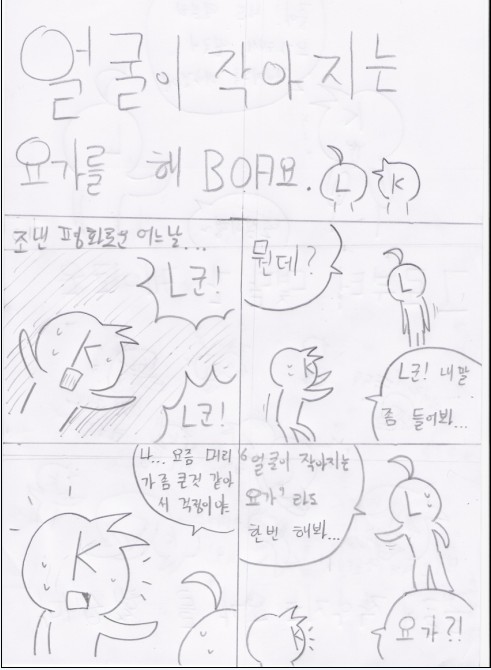 얼굴이 작아지는
요가를 해 BOA요.
L K
조낸 평화로운 어느날...
L군!
K
L군!
뭔데?
L
K
L군! 내 말
좀 들어봐...
나... 요즘 머리
가 좀 큰것 같아
서 걱정이야.
K
'얼굴이 작아지는
요가' 라도
한번 해봐...
L
K
요가?!